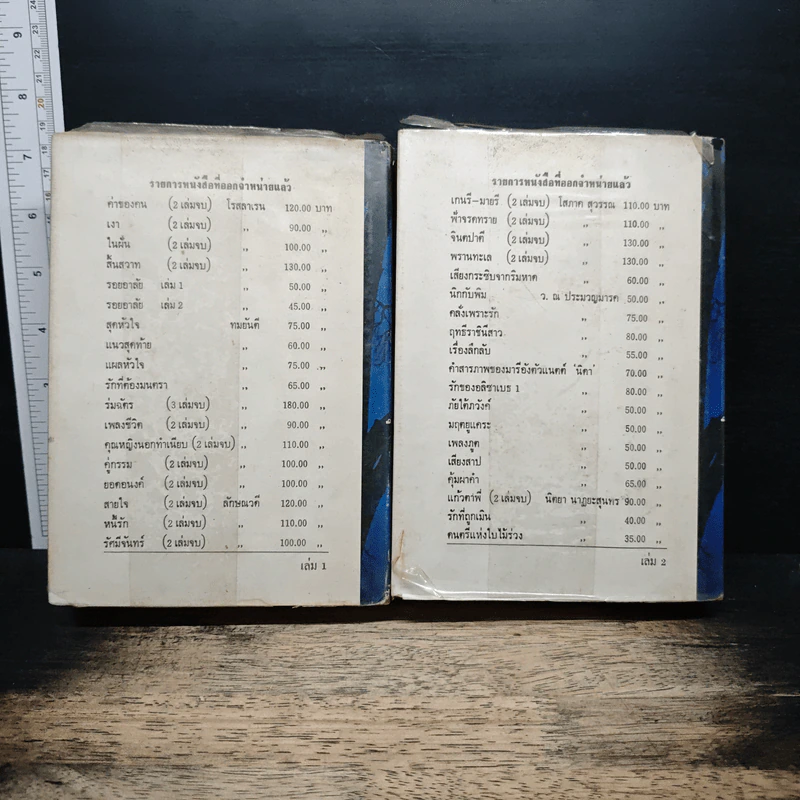 รายการหนังสือที่ออกจำหน่ายแล้ว
ค่าของคน (2 เล่มจบ) โรสลาเรน 120.00 บาท
เงา (2 เล่มจบ) ,, 90.00 ,,
ในฝัน (2 เล่มจบ) ,, 100.00 ,,
สิ้นสวาท (2 เล่มจบ) ,, 130.00 ,,
รอยอาลัย เล่ม 1 ,, 50.00 ,,
รอยอาลัย เล่ม 2 ,, 45.00 ,,
สุดหัวใจ ทมยันตี 75.00 ,,
แนวสุดท้าย ,, 60.00 ,,
แผลหัวใจ ,, 75.00 ,,
รักที่ต้องมนตรา ,, 65.00 ,,
ร่มฉัตร (3 เล่มจบ) ,, 180.00 ,,
เพลงชีวิต (2 เล่มจบ) ,, 90.00 ,,
คุณหญิงนอกทำเนียบ (2 เล่มจบ) ,, 110.00 ,,
คู่กรรม (2 เล่มจบ) ,, 100.00 ,,
ยอดอนงค์ (2 เล่มจบ) ,, 100.00 ,,
สายใจ (2 เล่มจบ) ลักษณวดี 120.00 ,,
หนี้รัก (2 เล่มจบ) ,, 110.00 ,,
รัศมีจันทร์ (2 เล่มจบ) ,, 100.00 ,,
เล่ม 1
รายการหนังสือที่ออกจำหน่ายแล้ว
เกนรี-มายรี (2 เล่มจบ) โสภาค สุวรรณ 110.00 บาท
ฟ้าจรดทราย (2 เล่มจบ) ,, 110.00 ,,
จินตปาตี (2 เล่มจบ) ,, 130.00 ,,
พรานทะเล (2 เล่มจบ) ,, 130.00 ,,
เสียงกระซิบจากริมหาด ,, 60.00 ,,
นิกกับพิม ว. ณ ประมวญมารค 50.00 ,,
คลั่งเพราะรัก ,, 75.00 ,,
ฤทธีราชินีสาว ,, 80.00 ,,
เรื่องลึกลับ ,, 55.00 ,,
คำสารภาพของมารีอังตัวแนตต์ 'นิดา' 70.00 ,,
รักของอลิซาเบธ 1 ,, 80.00 ,,
ภัยใต้ภวังค์ ,, 50.00 ,,
มฤตยูแคระ ,, 50.00 ,,
เพลงภูต ,, 50.00 ,,
เสียงสาป ,, 50.00 ,,
คุ้มผาคำ ,, 65.00 ,,
แก้วตาพี่ (2 เล่มจบ) นิตยา นาฏยะสุนทร 90.00 ,,
รักที่ถูกเมิน ,, 40.00 ,,
ดนตรีแห่งใบไม้ร่วง ,, 35.00 ,,
เล่ม 2